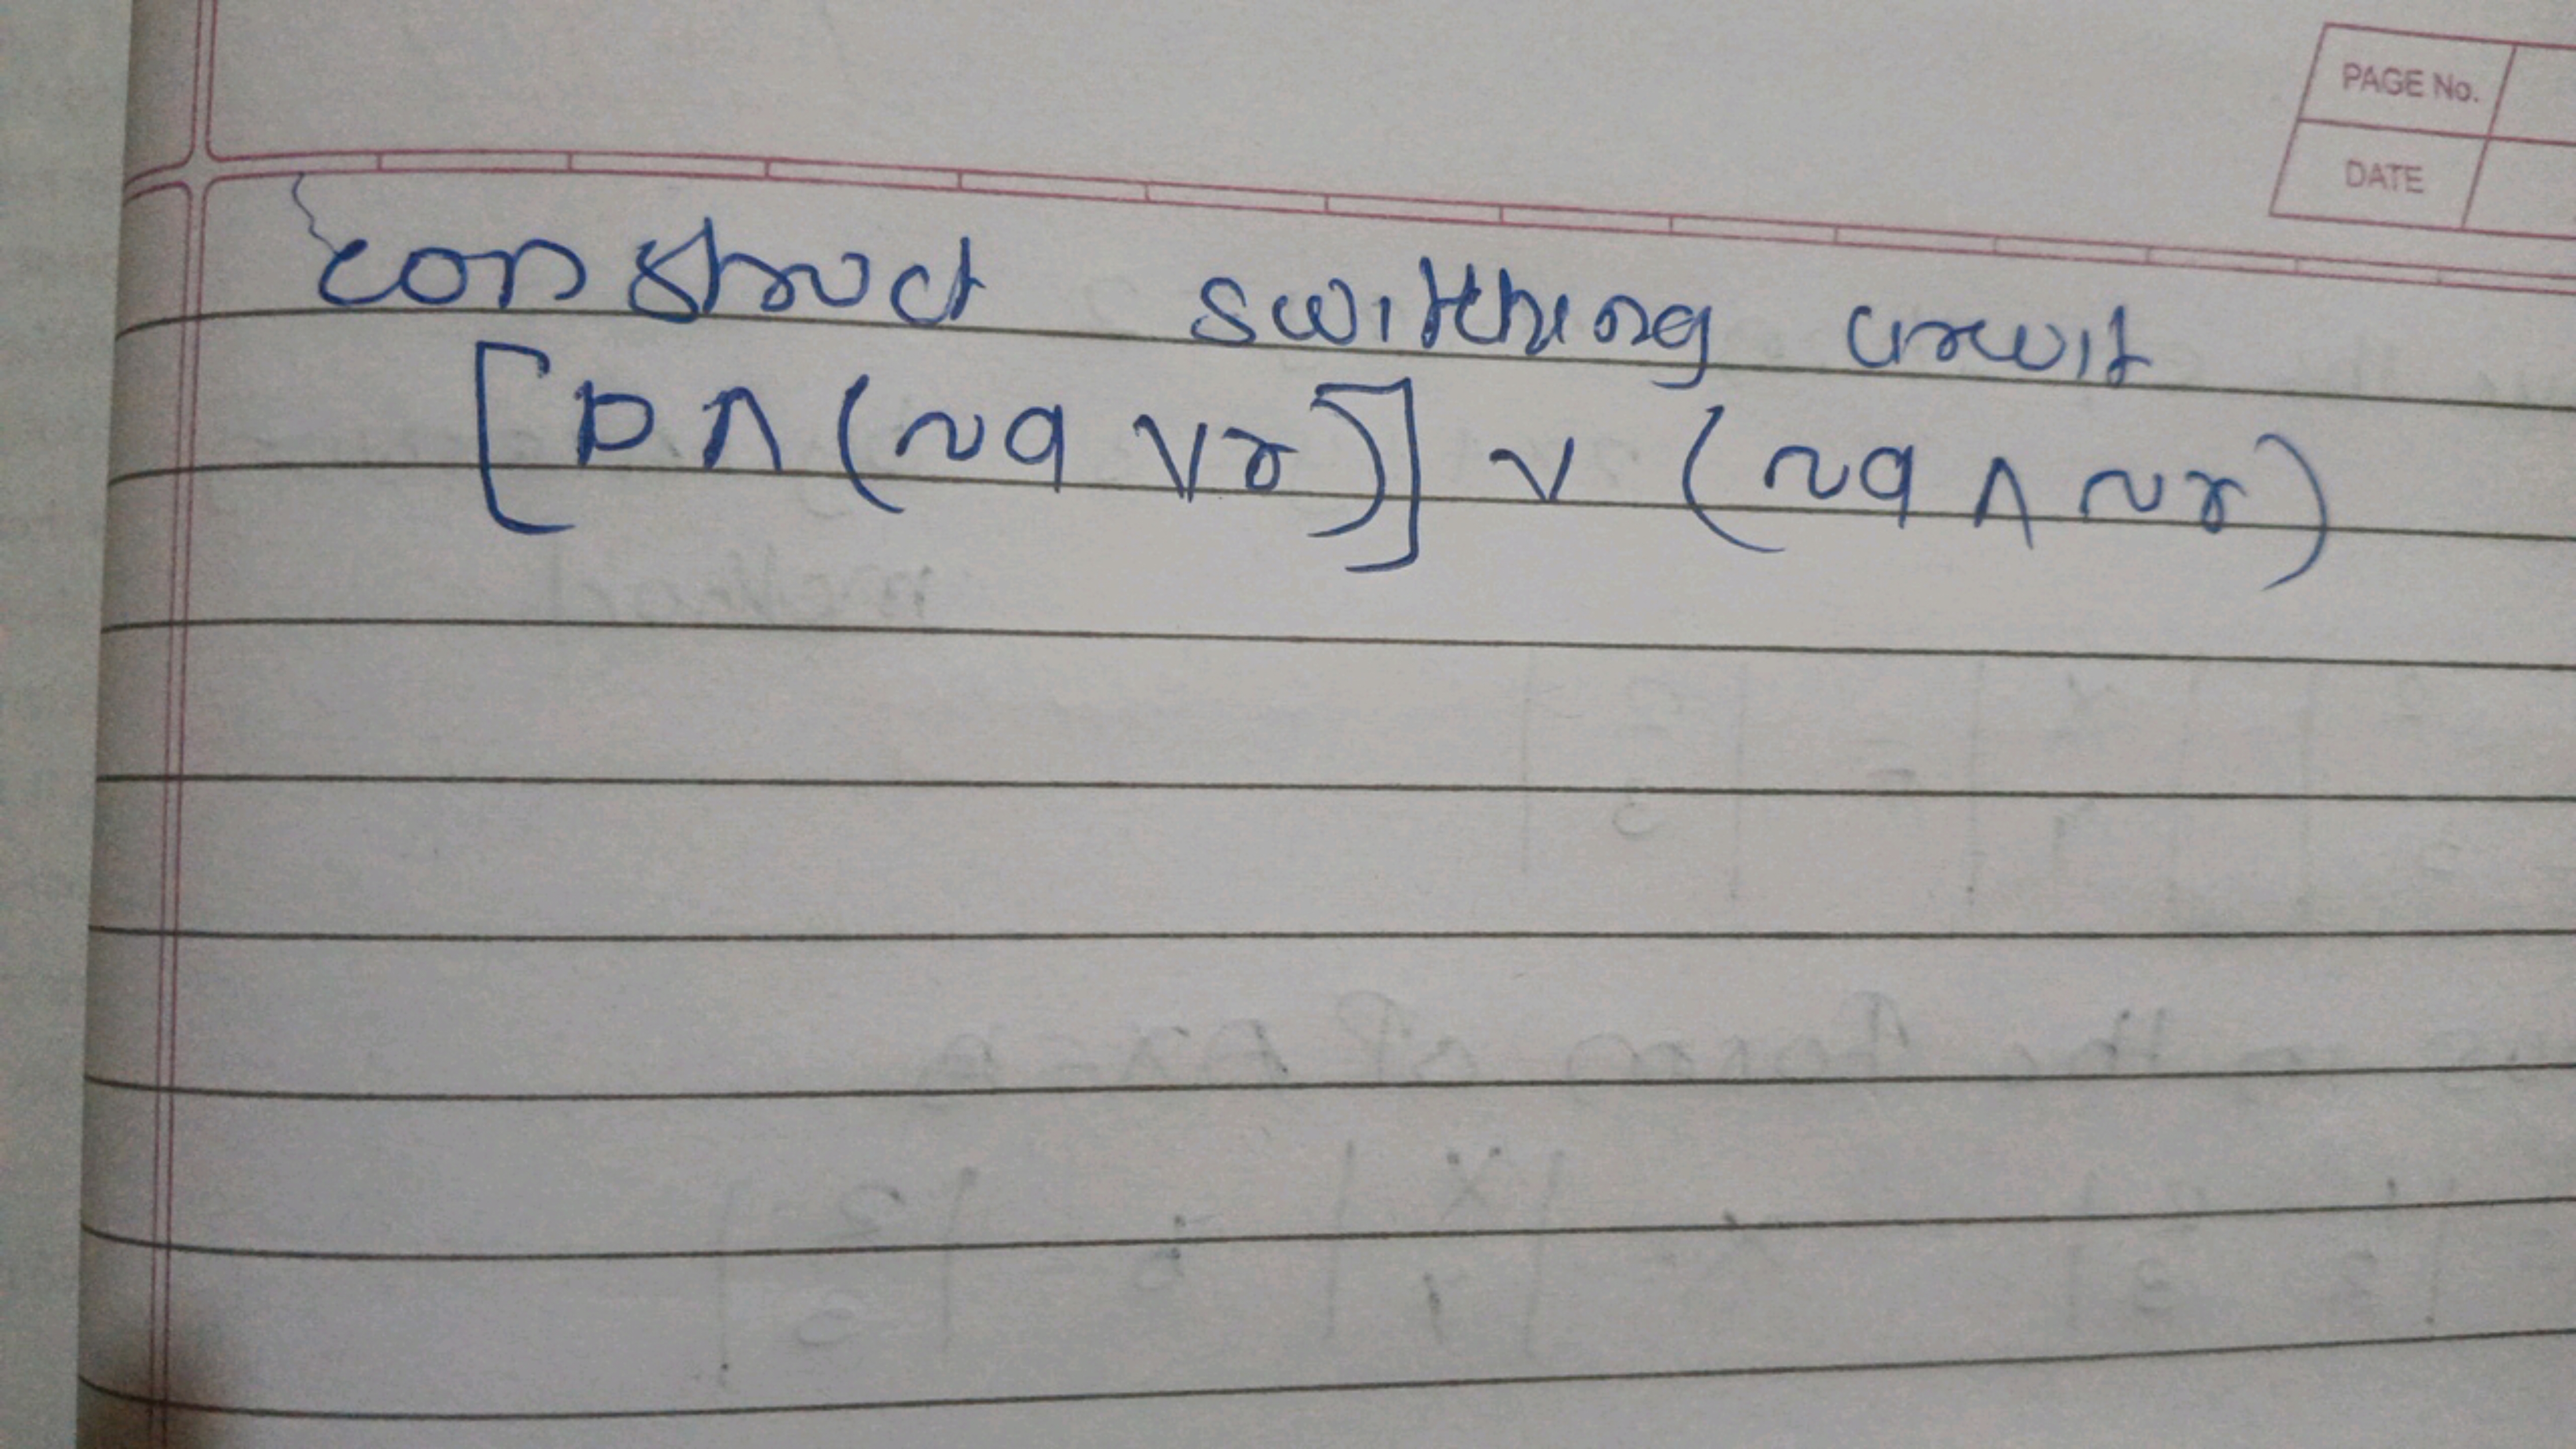 PAGE No.
DATE
construct switching circuit
[p ∧ (~q ∨ r)] ∨ (~q ∧ ~r)